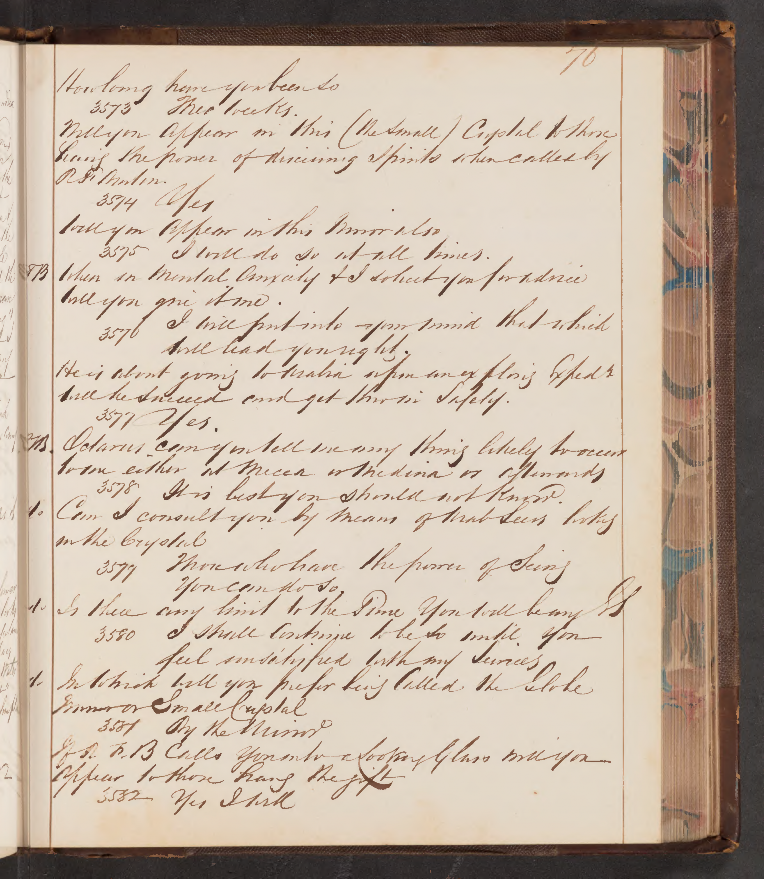 76
How long have you been so
3573 Three weeks.
Will you appear in this (the small) Crystal to those
having the power of discerning spirits when called by
R. F. Burton.
3574 Yes
Will you appear in this Mirror also
3575 I will do so at all times.
RFB When in Mental Anxiety & I solicit you for advice
will you give it me.
3576 I will put into your mind that which
will lead you right.
He is about going to Arabia upon an exploring Exped
will he succeed and get thro in Safety.
3577 Yes.
RFB. Octavius can you tell me any thing likely to occur
to me either at Mecca or Medina or afterwards
3578 It is best you should not know.
do Can I consult you by means of Arab Seers looking
in the Crystal
3579 Those who have the power of Seeing
you can do so
do Is there any limit to the Time You will be my GS
3580 I shall Continue to be so until you
feel dissatisfied with my Services
do In which will you prefer being Called the Globe
Mirror or Small Crystal
3581 By the Mirror
If R. F. B Calls You into a Looking Glass will you
appear to those having the gift
3582 Yes I will